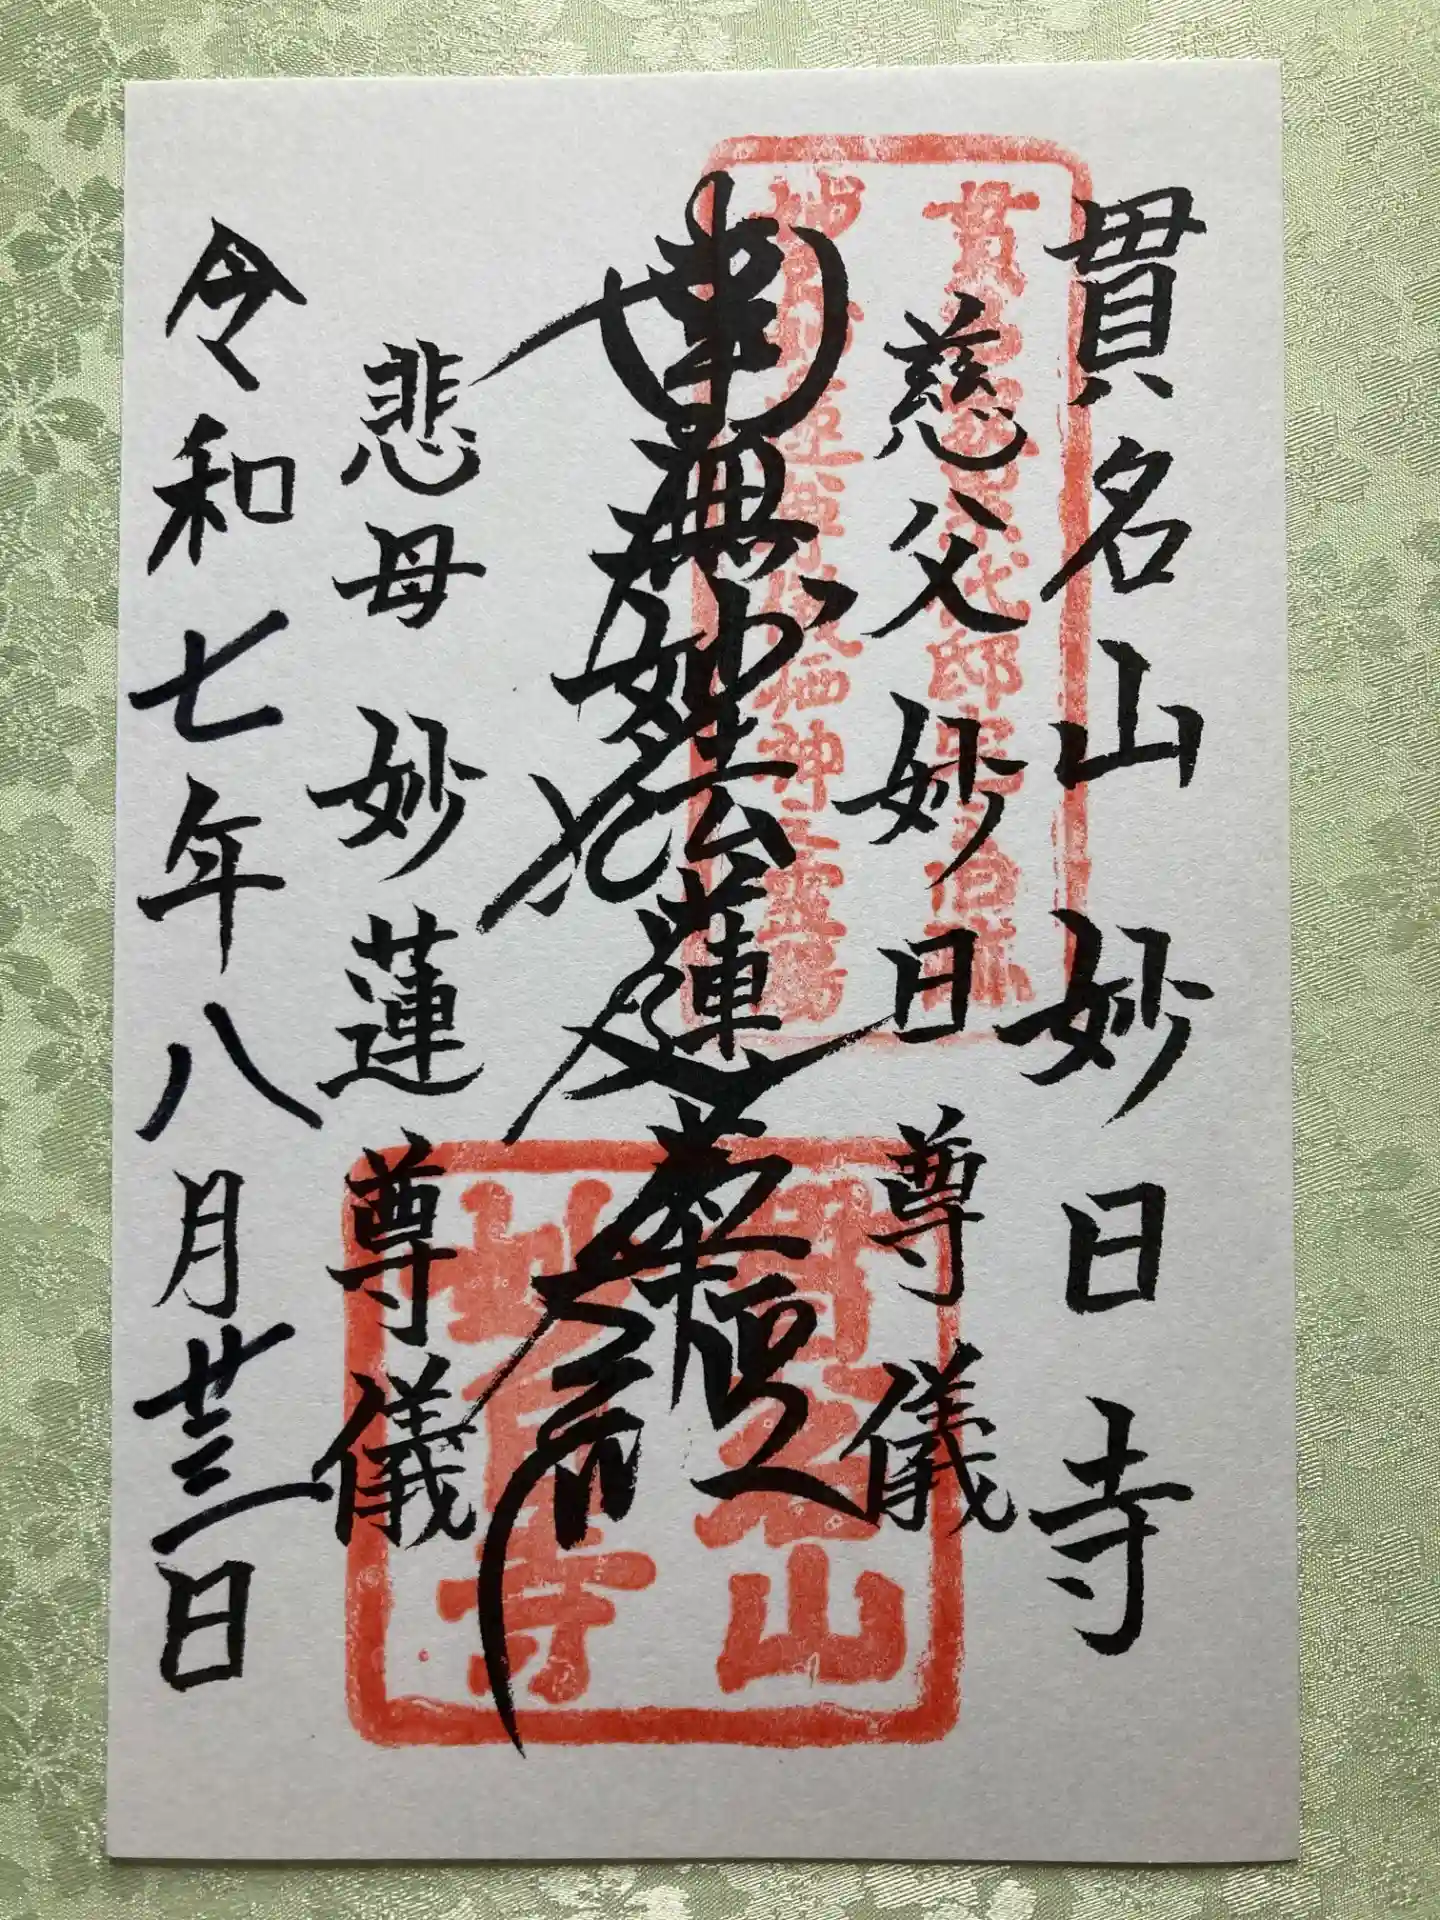 貫名山妙日寺
慈父妙日尊儀
南無妙法蓮華経
悲母妙蓮尊儀
令和七年八月廿三日
貫名山
妙日寺